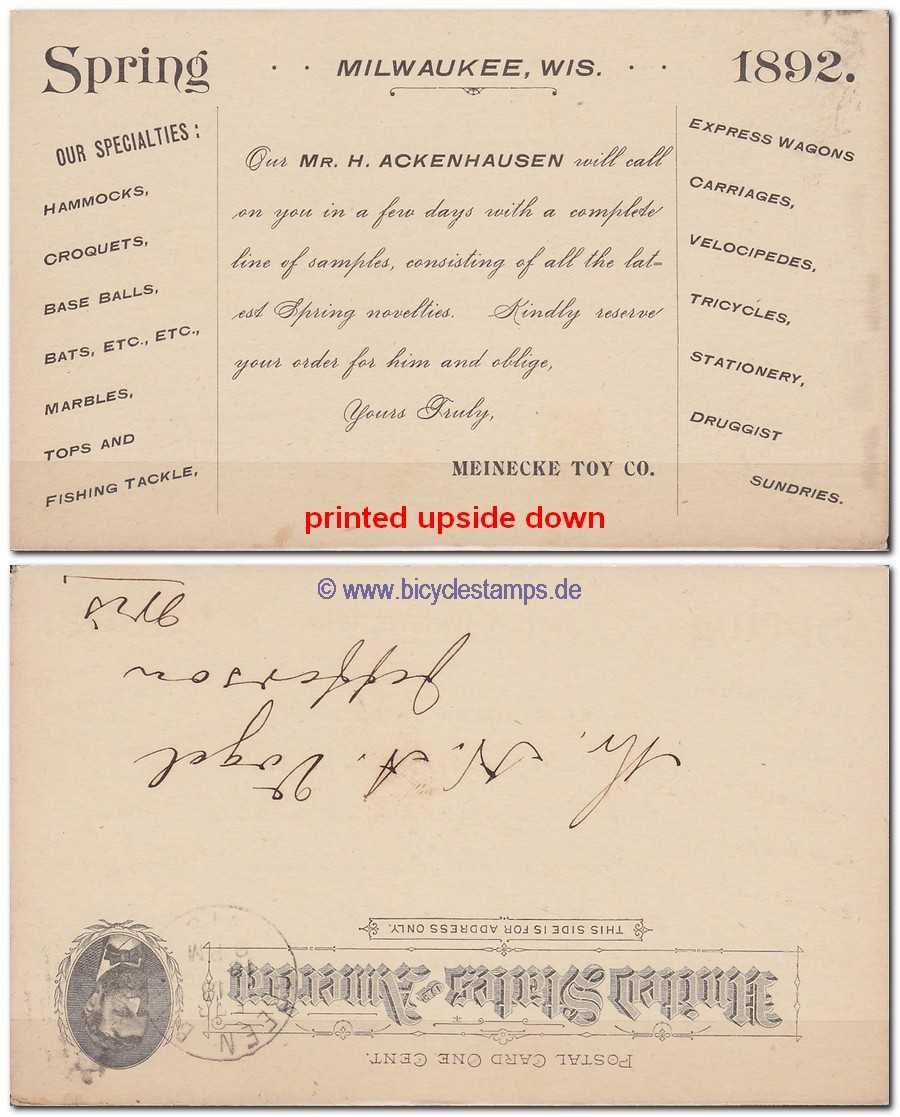 Spring · · MILWAUKEE, WIS. · · 1892.
OUR SPECIALTIES:
HAMMOCKS,
CROQUETS,
BASE BALLS,
BATS, ETC., ETC.,
MARBLES,
TOPS AND
FISHING TACKLE,
Our MR. H. ACKENHAUSEN will call
on you in a few days with a complete
line of samples, consisting of all the lat=
est Spring novelties. Kindly reserve
your order for him and oblige,
Yours Truly,
MEINECKE TOY CO.
EXPRESS WAGONS
CARRIAGES,
VELOCIPEDES,
TRICYCLES,
STATIONERY,
DRUGGIST
SUNDRIES.
printed upside down
© www.bicyclestamps.de
POSTAL CARD ONE CENT.
United States of America
THIS SIDE IS FOR ADDRESS ONLY.
Mr. N. A. Vogel
Jefferson
Wis